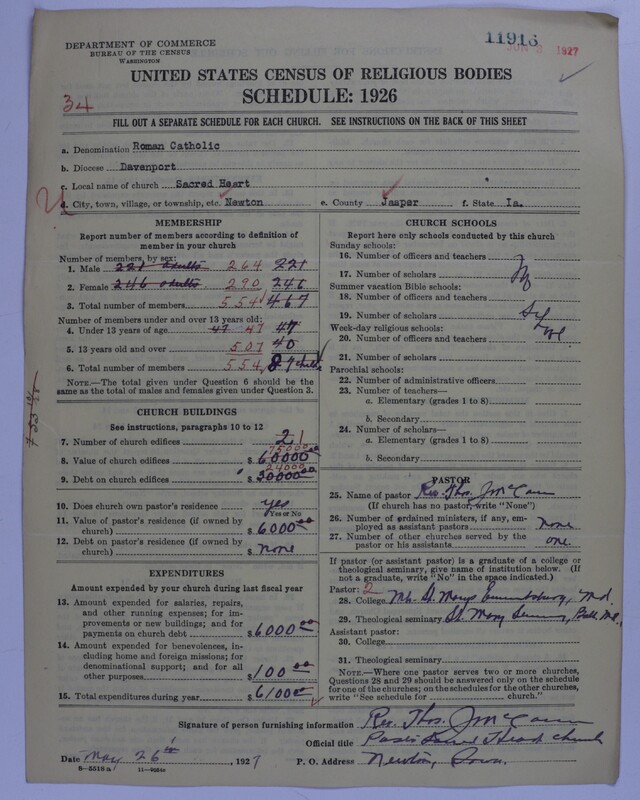 DEPARTMENT OF COMMERCE
BUREAU OF THE CENSUS
WASHINGTON
11916
1927
UNITED STATES CENSUS OF RELIGIOUS BODIES
SCHEDULE: 1926
34
FILL OUT A SEPARATE SCHEDULE FOR EACH CHURCH. SEE INSTRUCTIONS ON THE BACK OF THIS SHEET
a. Denomination Roman Catholic
b. Diocese Davenport
c. Local name of church Sacred Heart
d. City, town, village, or township, etc. Newton e. County Jasper f. State Ia.
MEMBERSHIP
Report number of members according to definition of member in your church
Number of members, by sex:
1. Male 221 adults 264 221
2. Female 246 adults 290 246
3. Total number of members 554 467
Number of members under and over 13 years old:
4. Under 13 years of age 47 47 47
5. 13 years old and over 507 40
6. Total number of members 554 87
NOTE.—The total given under Question 6 should be the same as the total of males and females given under Question 3.
CHURCH BUILDINGS
See instructions, paragraphs 10 to 12
7. Number of church edifices 2 1
8. Value of church edifices $ 60000 75000
9. Debt on church edifices $ 30000 24000
10. Does church own pastor's residence? yes
Yes or No
11. Value of pastor's residence (if owned by church) $ 6000 00
12. Debt on pastor's residence (if owned by church) $ none
EXPENDITURES
Amount expended by your church during last fiscal year
13. Amount expended for salaries, repairs, and other running expenses; for improvements or new buildings; and for payments on church debt $ 6000 00
14. Amount expended for benevolences, including home and foreign missions; for denominational support; and for all other purposes $ 100 00
15. Total expenditures during year $ 6100 00
CHURCH SCHOOLS
Report here only schools conducted by this church
Sunday schools:
16. Number of officers and teachers
17. Number of scholars
Summer vacation Bible schools:
18. Number of officers and teachers
19. Number of scholars
Week-day religious schools:
20. Number of officers and teachers
21. Number of scholars
Parochial schools:
22. Number of administrative officers
23. Number of teachers—
a. Elementary (grades 1 to 8)
b. Secondary
24. Number of scholars—
a. Elementary (grades 1 to 8)
b. Secondary
PASTOR
25. Name of pastor Rev. Thos. J McCann
(If church has no pastor, write "None")
26. Number of ordained ministers, if any, employed as assistant pastors none
27. Number of other churches served by the pastor or his assistants one
If pastor (or assistant pastor) is a graduate of a college or theological seminary, give name of institution below. (If not a graduate, write "No" in the space indicated.)
Pastor: 2
28. College Mt. St. Marys Emmitsburg, Md.
29. Theological seminary St. Mary Seminary, Balt. Md.
Assistant pastor:
30. College
31. Theological seminary
NOTE.—Where one pastor serves two or more churches, Questions 28 and 29 should be answered only on the schedule for one of the churches; on the schedules for the other churches, write "See schedule for church."
Signature of person furnishing information Rev. Thos. J McCann
Official title Pastor Sacred Heart Church
Date May 26th, 1927 P. O. Address Newton, Iowa.
8-5518a 11-8659a